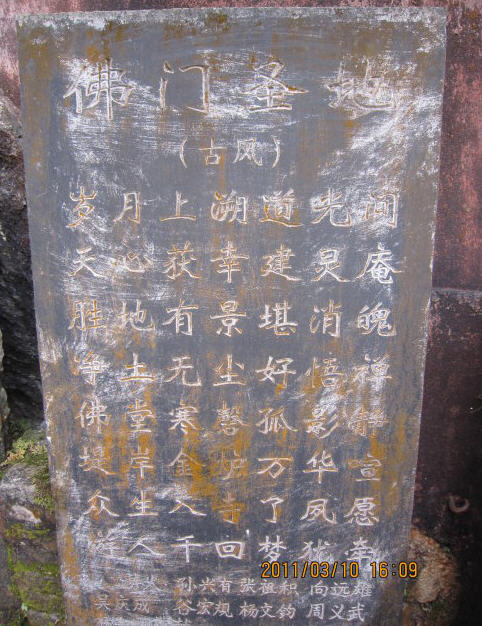 佛门圣地
(古风)
岁月上溯道光间
天心获幸建灵庵
胜地有景堪消魄
净土无尘好悟禅
佛堂寒磬孤影静
堤岸金炉万华宣
众生入寺了夙愿
人千回梦犹牵
孙兴有 张祖和 向远雄
吴庆成 谷宏规 杨文钧 周义武
2011/03/10 16:09